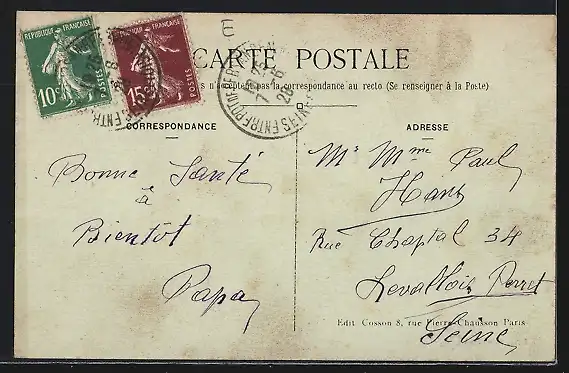 E
REPUBLIQUE FRANÇAISE
10c POSTES
REPUBLIQUE FRANÇAISE
15c POSTES
CARTE POSTALE
n'acceptent pas la correspondance au recto (Se renseigner à la Poste)
CORRESPONDANCE
Bonne Santé
à
Bientôt
Papa
ADRESSE
Mr Mme Paul
Hans
Rue Chaptal 34
Levallois Perret
Edit Cosson 8, rue Pierre-Chausson Paris
Seine